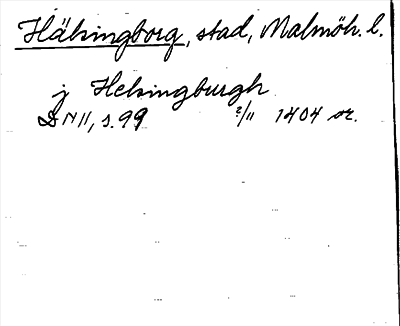 Hälsingborg, stad, Malmöh. l.
j Helsingburgh
DN II, s. 99 2/11 1404 or.